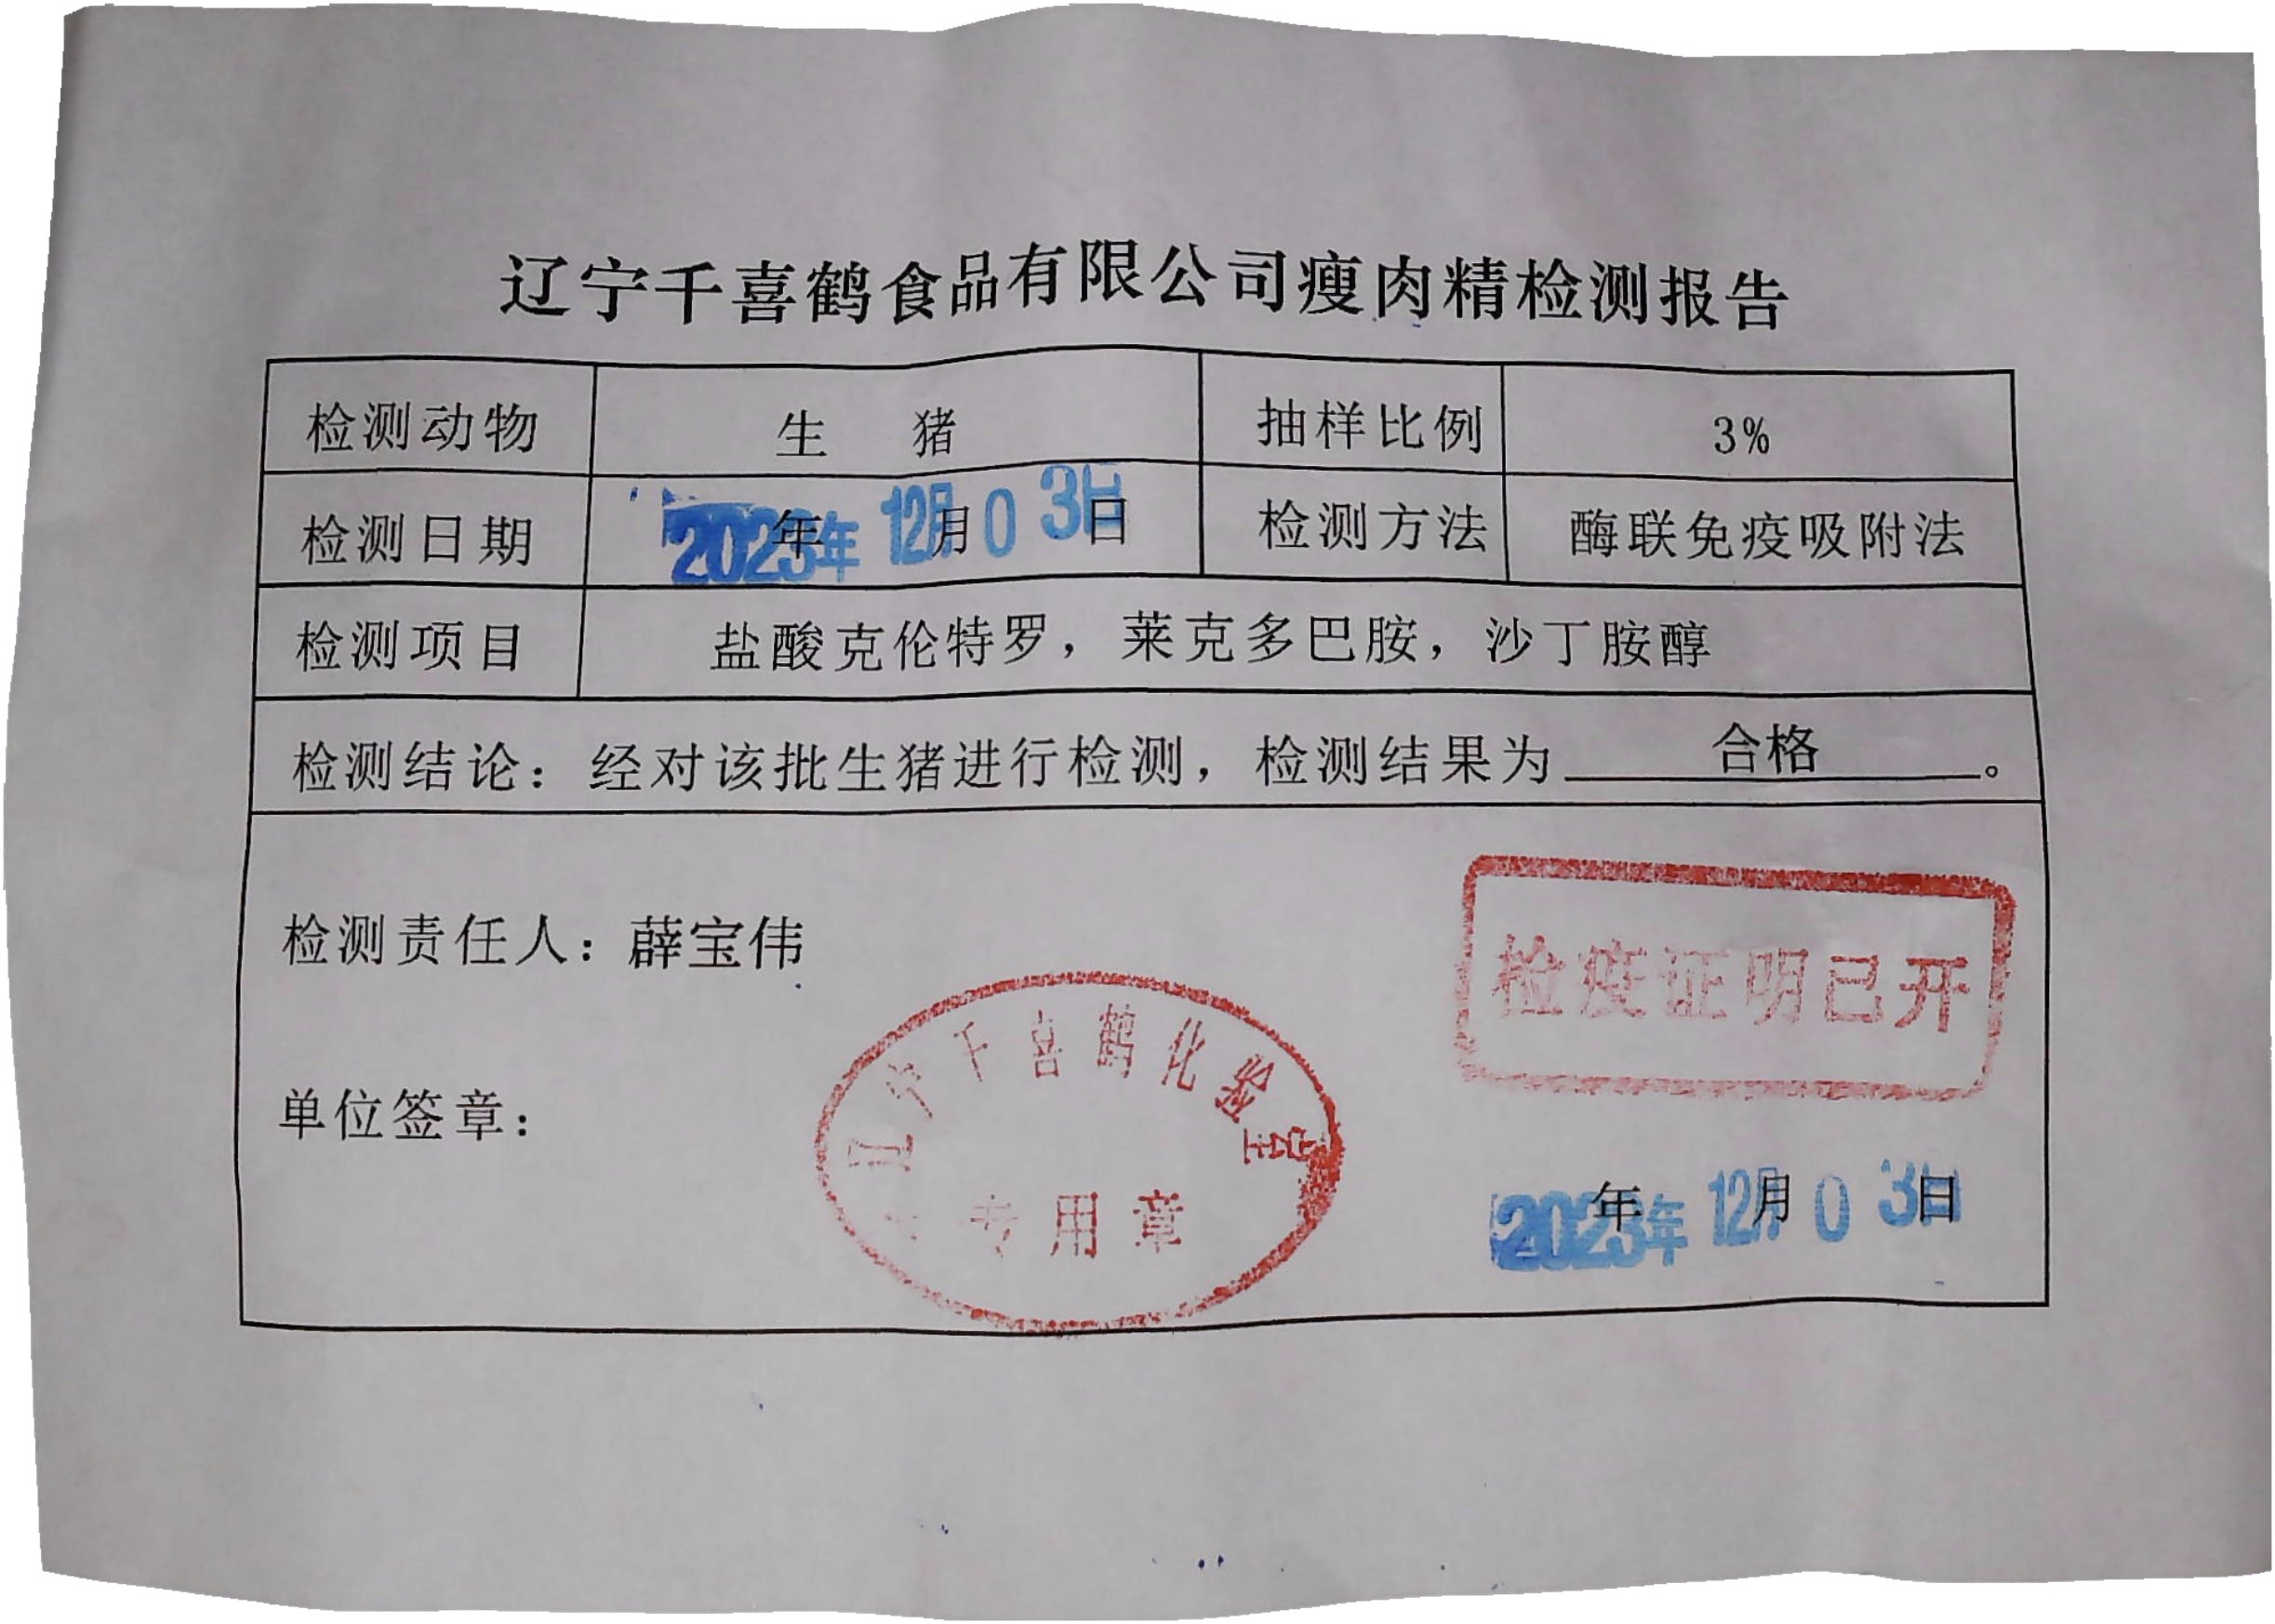 辽宁千喜鹤食品有限公司瘦肉精检测报告
检测动物 生 猪 抽样比例 3%
检测日期 2023年12月03日 年 月 日 检测方法 酶联免疫吸附法
检测项目 盐酸克伦特罗，莱克多巴胺，沙丁胺醇
检测结论：经对该批生猪进行检测，检测结果为 合格 。
检测责任人：薛宝伟
检疫证明已开
单位签章：
辽宁千喜鹤化验室
专用章
2023年12月03日 年 月 日